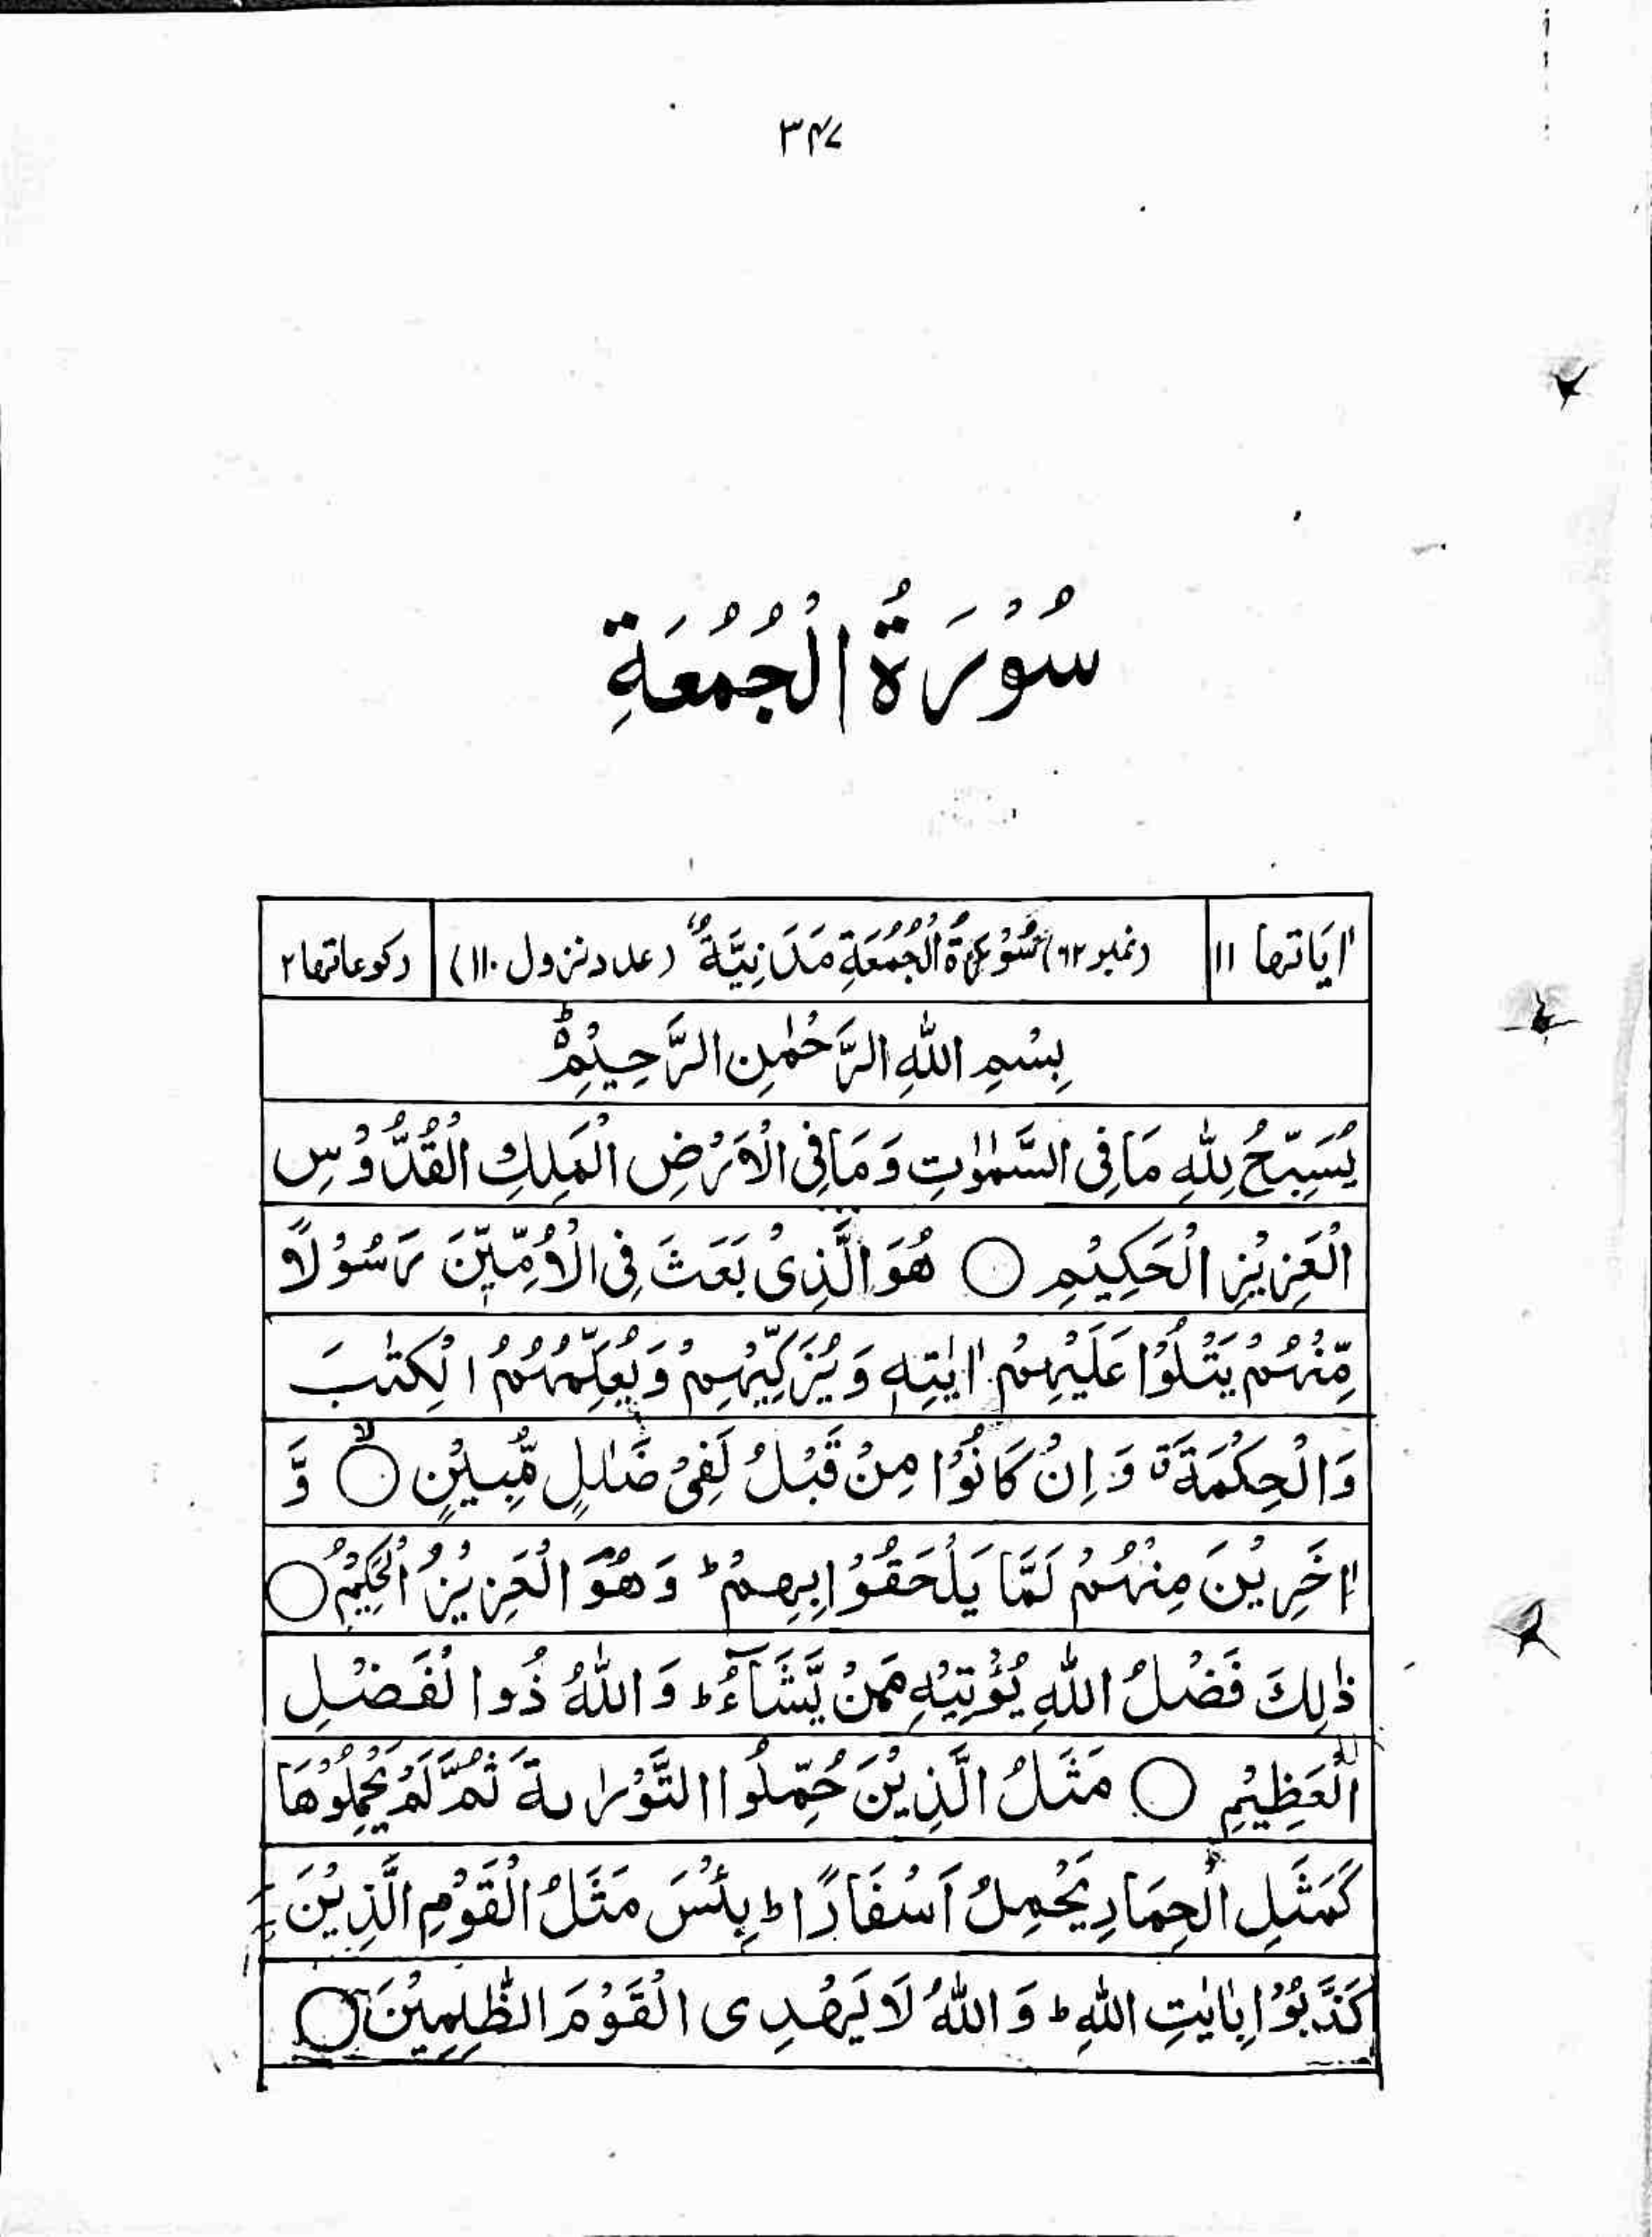 ۳۴۷
سُوْرَةُ الْجُمُعَةِ
اٰیَاتُھَا ۱۱ (نمبر ۶۲) سُوْرَةُ الْجُمُعَةِ مَدَنِیَّةٌ (عدد نزول ۱۱۰) رکوعاتھا ۲
بِسْمِ اللّٰهِ الرَّحْمٰنِ الرَّحِیْمِ ؕ
یُسَبِّحُ لِلّٰهِ مَا فِی السَّمٰوٰتِ وَ مَا فِی الْاَرْضِ الْمَلِكِ الْقُدُّوْسِ
الْعَزِیْزِ الْحَكِیْمِ ○ هُوَ الَّذِیْ بَعَثَ فِی الْاُمِّیّٖنَ رَسُوْلًا
مِّنْهُمْ یَتْلُوْا عَلَیْهِمْ اٰیٰتِهٖ وَ یُزَكِّیْهِمْ وَ یُعَلِّمُهُمُ الْكِتٰبَ
وَ الْحِكْمَةَ ۗ وَ اِنْ كَانُوْا مِنْ قَبْلُ لَفِیْ ضَلٰلٍ مُّبِیْنٍ ○ۙ وَّ
اٰخَرِیْنَ مِنْهُمْ لَمَّا یَلْحَقُوْا بِهِمْ ؕ وَ هُوَ الْعَزِیْزُ الْحَكِیْمُ ○
ذٰلِكَ فَضْلُ اللّٰهِ یُؤْتِیْهِ مَنْ یَّشَآءُ ؕ وَ اللّٰهُ ذُو الْفَضْلِ
الْعَظِیْمِ ○ مَثَلُ الَّذِیْنَ حُمِّلُوا التَّوْرٰىةَ ثُمَّ لَمْ یَحْمِلُوْهَا
كَمَثَلِ الْحِمَارِ یَحْمِلُ اَسْفَارًا ؕ بِئْسَ مَثَلُ الْقَوْمِ الَّذِیْنَ
كَذَّبُوْا بِاٰیٰتِ اللّٰهِ ؕ وَ اللّٰهُ لَا یَهْدِی الْقَوْمَ الظّٰلِمِیْنَ ○